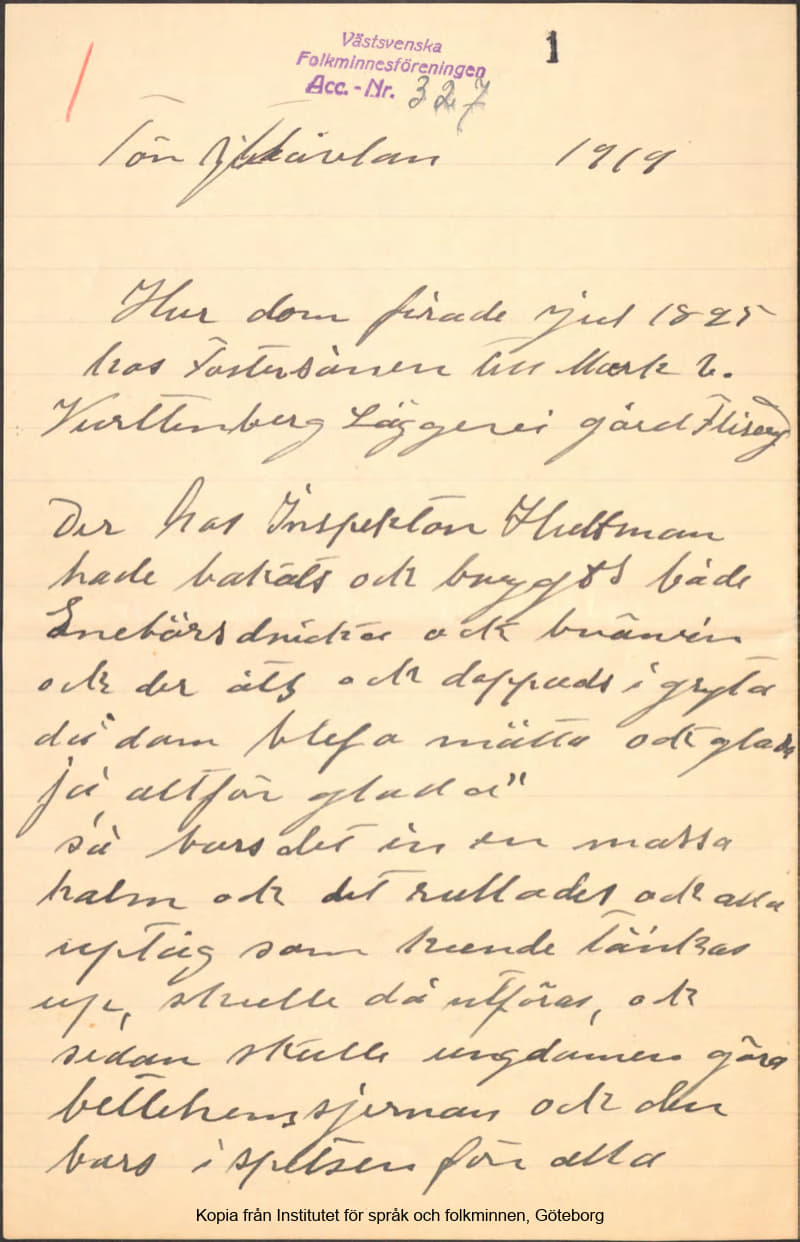 Västsvenska
Folkminnesföreningen
Acc.-Nr. 327
1
För Jultävlan 1919
Hur dom firade Jul 1895
hos Fostersönen till Mark v.
Vurttenberg Läggerei gård Flisby
Der hos Inspektor Hultman
hade bakats ock bryggts både
Enebärsdricka ock bränvin
ock der äts ock doppads i gryta
då dom blefo mätta ock glada
ja altför glada"
så bars det in en massa
halm ock det rullades ock alla
uptåg som kunde tänkas
up, skulle då utföras, ock
sedan skulle ungdomen göra
bettlehemsjernan ock den
bars i spetsen för alla
Kopia från Institutet för språk och folkminnen, Göteborg